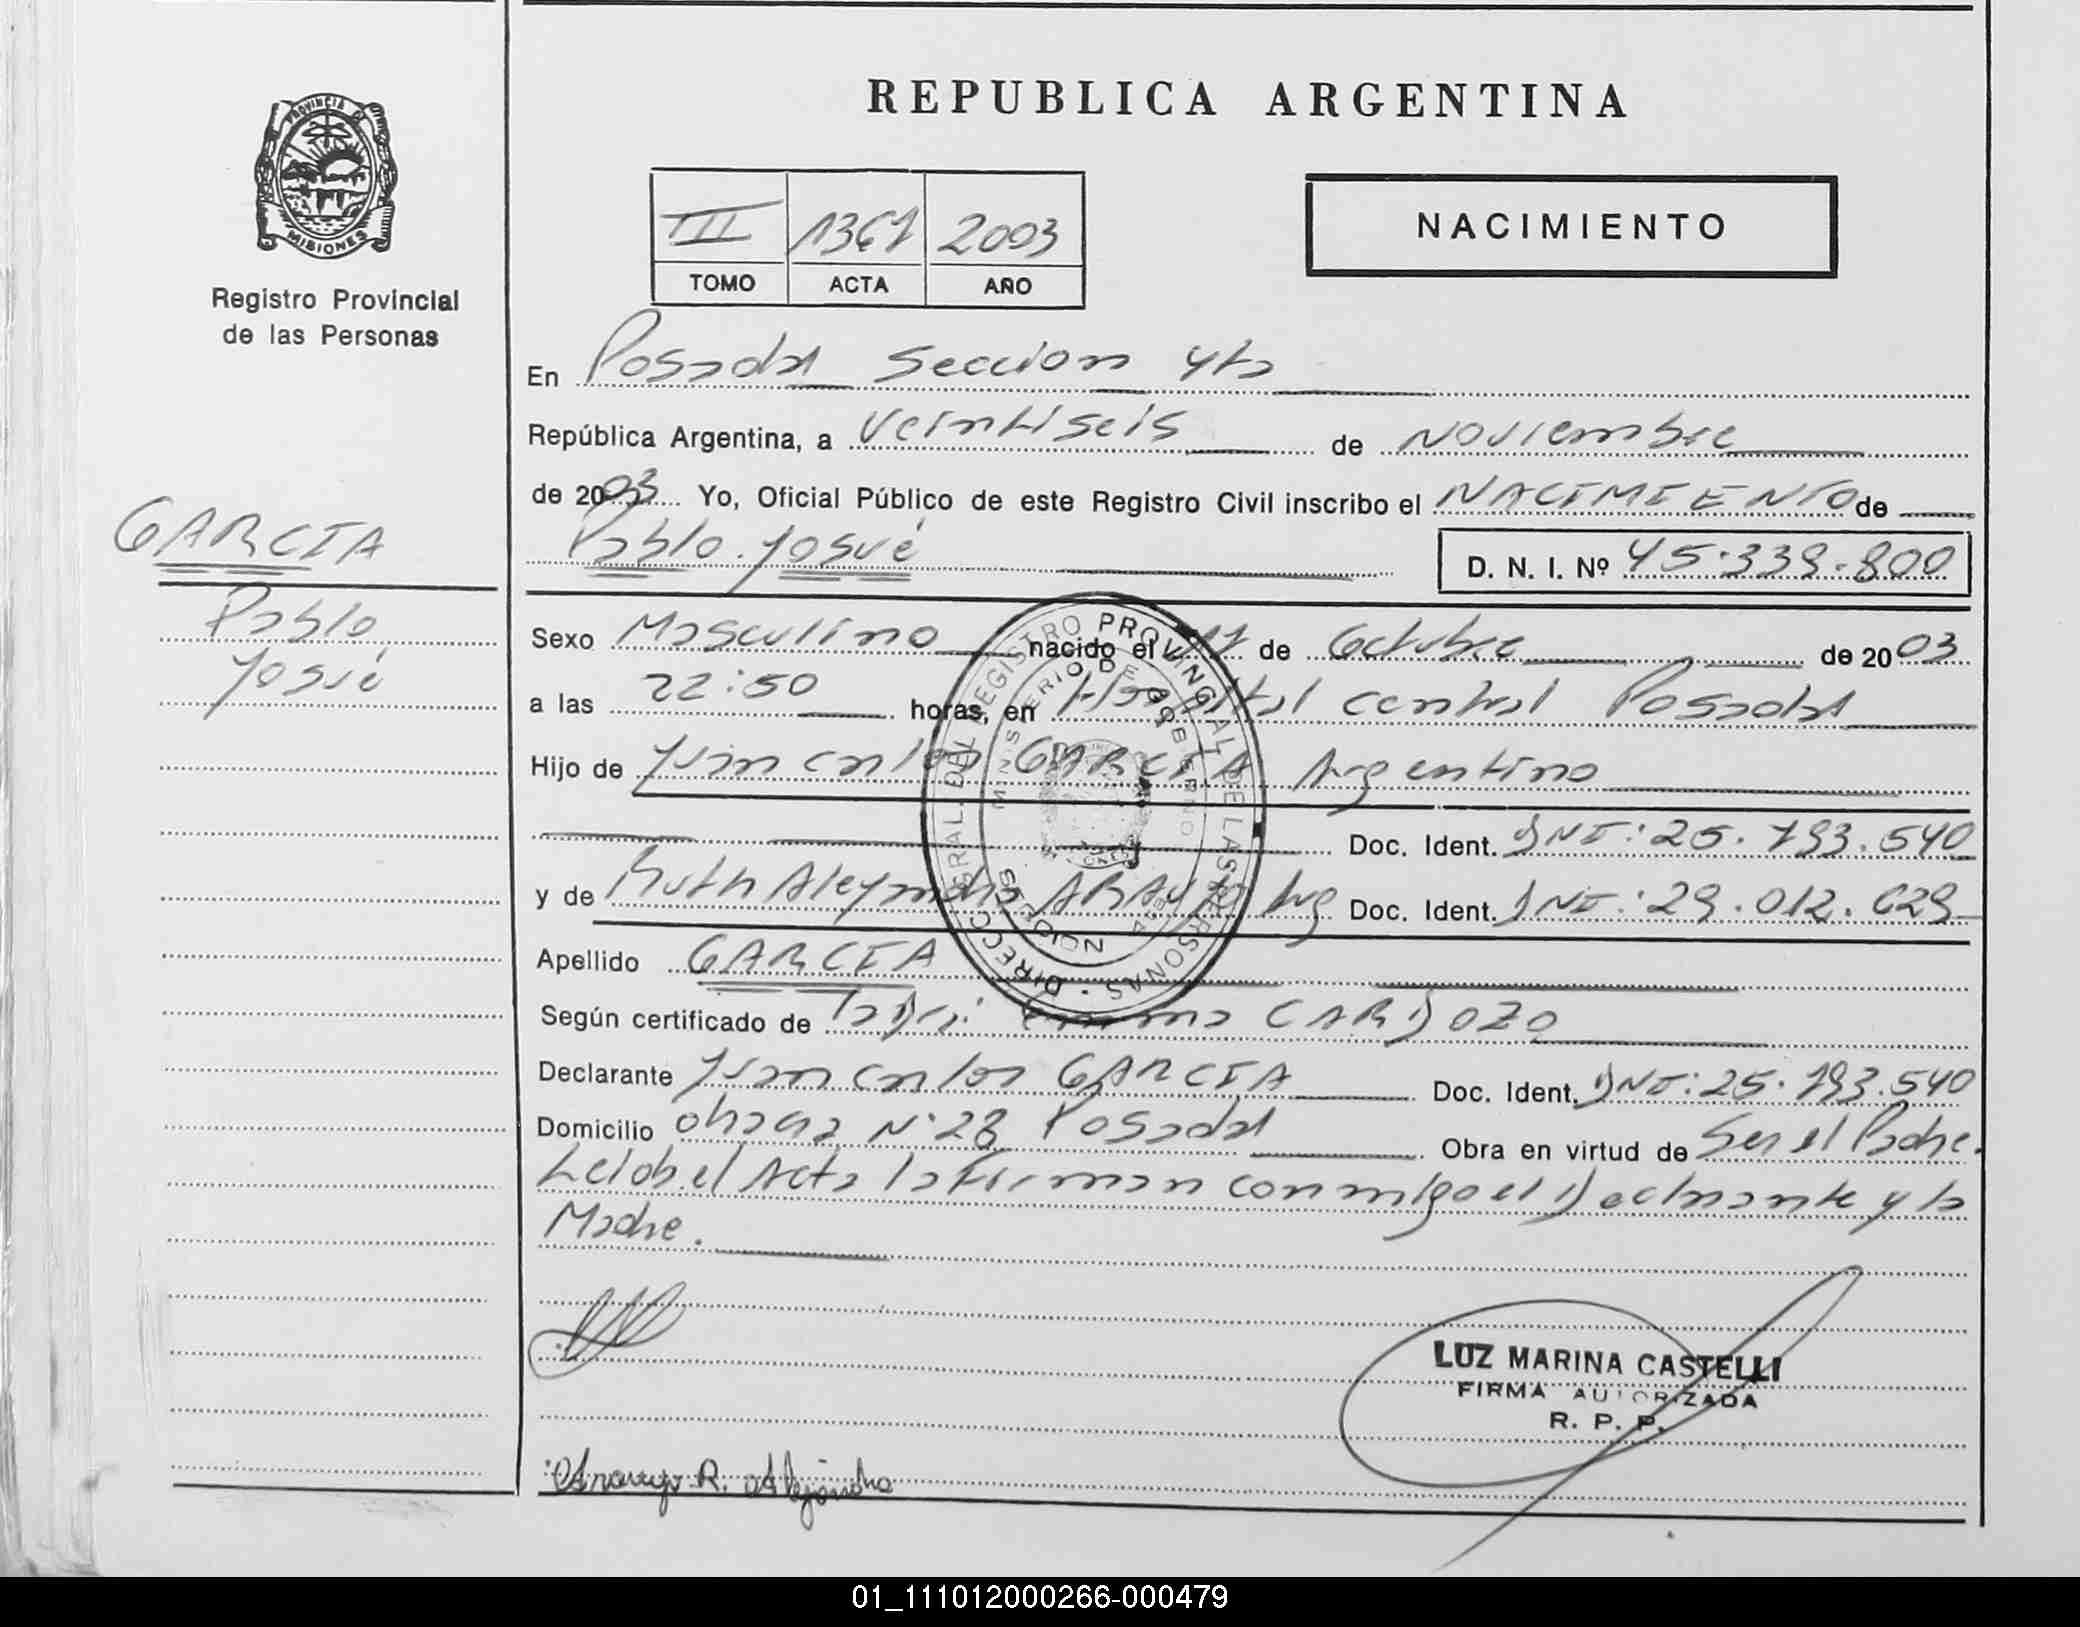 REPUBLICA ARGENTINA
PROVINCIA DE
MISIONES
Registro Provincial
de las Personas
III 2003
TOMO ACTA AÑO
NACIMIENTO
En Posadas Seccion 4ta
República Argentina, a Veintiseis de Noviembre
de 2003 Yo, Oficial Público de este Registro Civil inscribo el NACIMIENTO de
Pablo Josué D. N. I. Nº
GARCIA
Pablo
Josué
Sexo Masculino nacido el de Octubre de 2003
a las 22:50 horas, en Hospital central Posadas
Hijo de Juan Carlos GARCIA Argentino
Doc. Ident. DNI:
y de Ruth Alejandra ARAUJO Arg Doc. Ident. DNI:
Apellido GARCIA
Según certificado de la CARDOZO
Declarante Juan Carlos GARCIA Doc. Ident. DNI:
Domicilio Nº 28 Posadas Obra en virtud de Ser el Padre.
Leida el Acta la Firman conmigo el Declarante y la
Madre.
DIRECC. GRAL. DEL REGISTRO PROVINCIAL DE LAS PERSONAS
MINISTERIO DE GOBIERNO
LUZ MARINA CASTELLI
FIRMA AUTORIZADA
R. P. P.
Araujo R. Alejandra
01_111012000266-000479